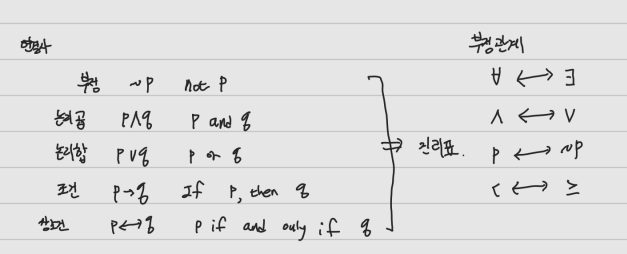 연결사
부정 ~p not p
논리곱 p∧q p and q
논리합 p∨q p or q
조건 p→q If p, then q
쌍조건 p↔q p if and only if q
⇒ 진리표.
부정관계
∀ ↔ ∃
∧ ↔ ∨
p ↔ ~p
< ↔ ≥